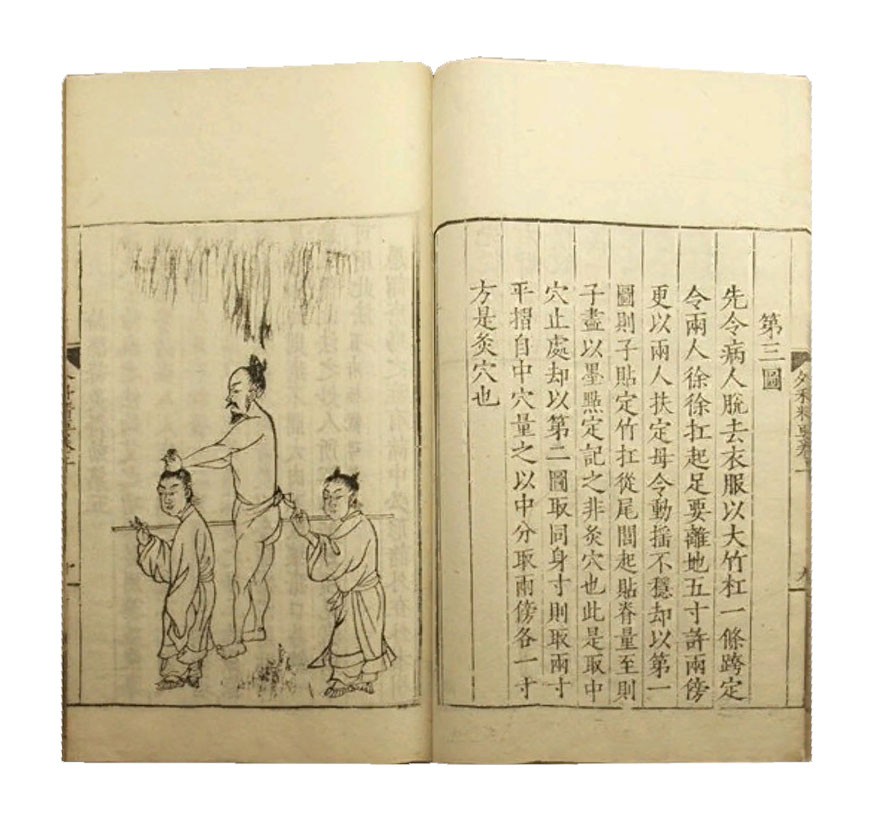 第三圖
先令病人脫去衣服以大竹杠一條跨定
令兩人徐徐扛起足要離地五寸許兩傍
更以兩人扶定母令動搖不穩却以第一
圖則子貼定竹扛從尾閭起貼脊量至則
子盡以墨點定記之非灸穴也此是取中
穴止處却以第二圖取同身寸則取兩寸
平摺自中穴量之以中分取兩傍各一寸
方是灸穴也
外科精要卷